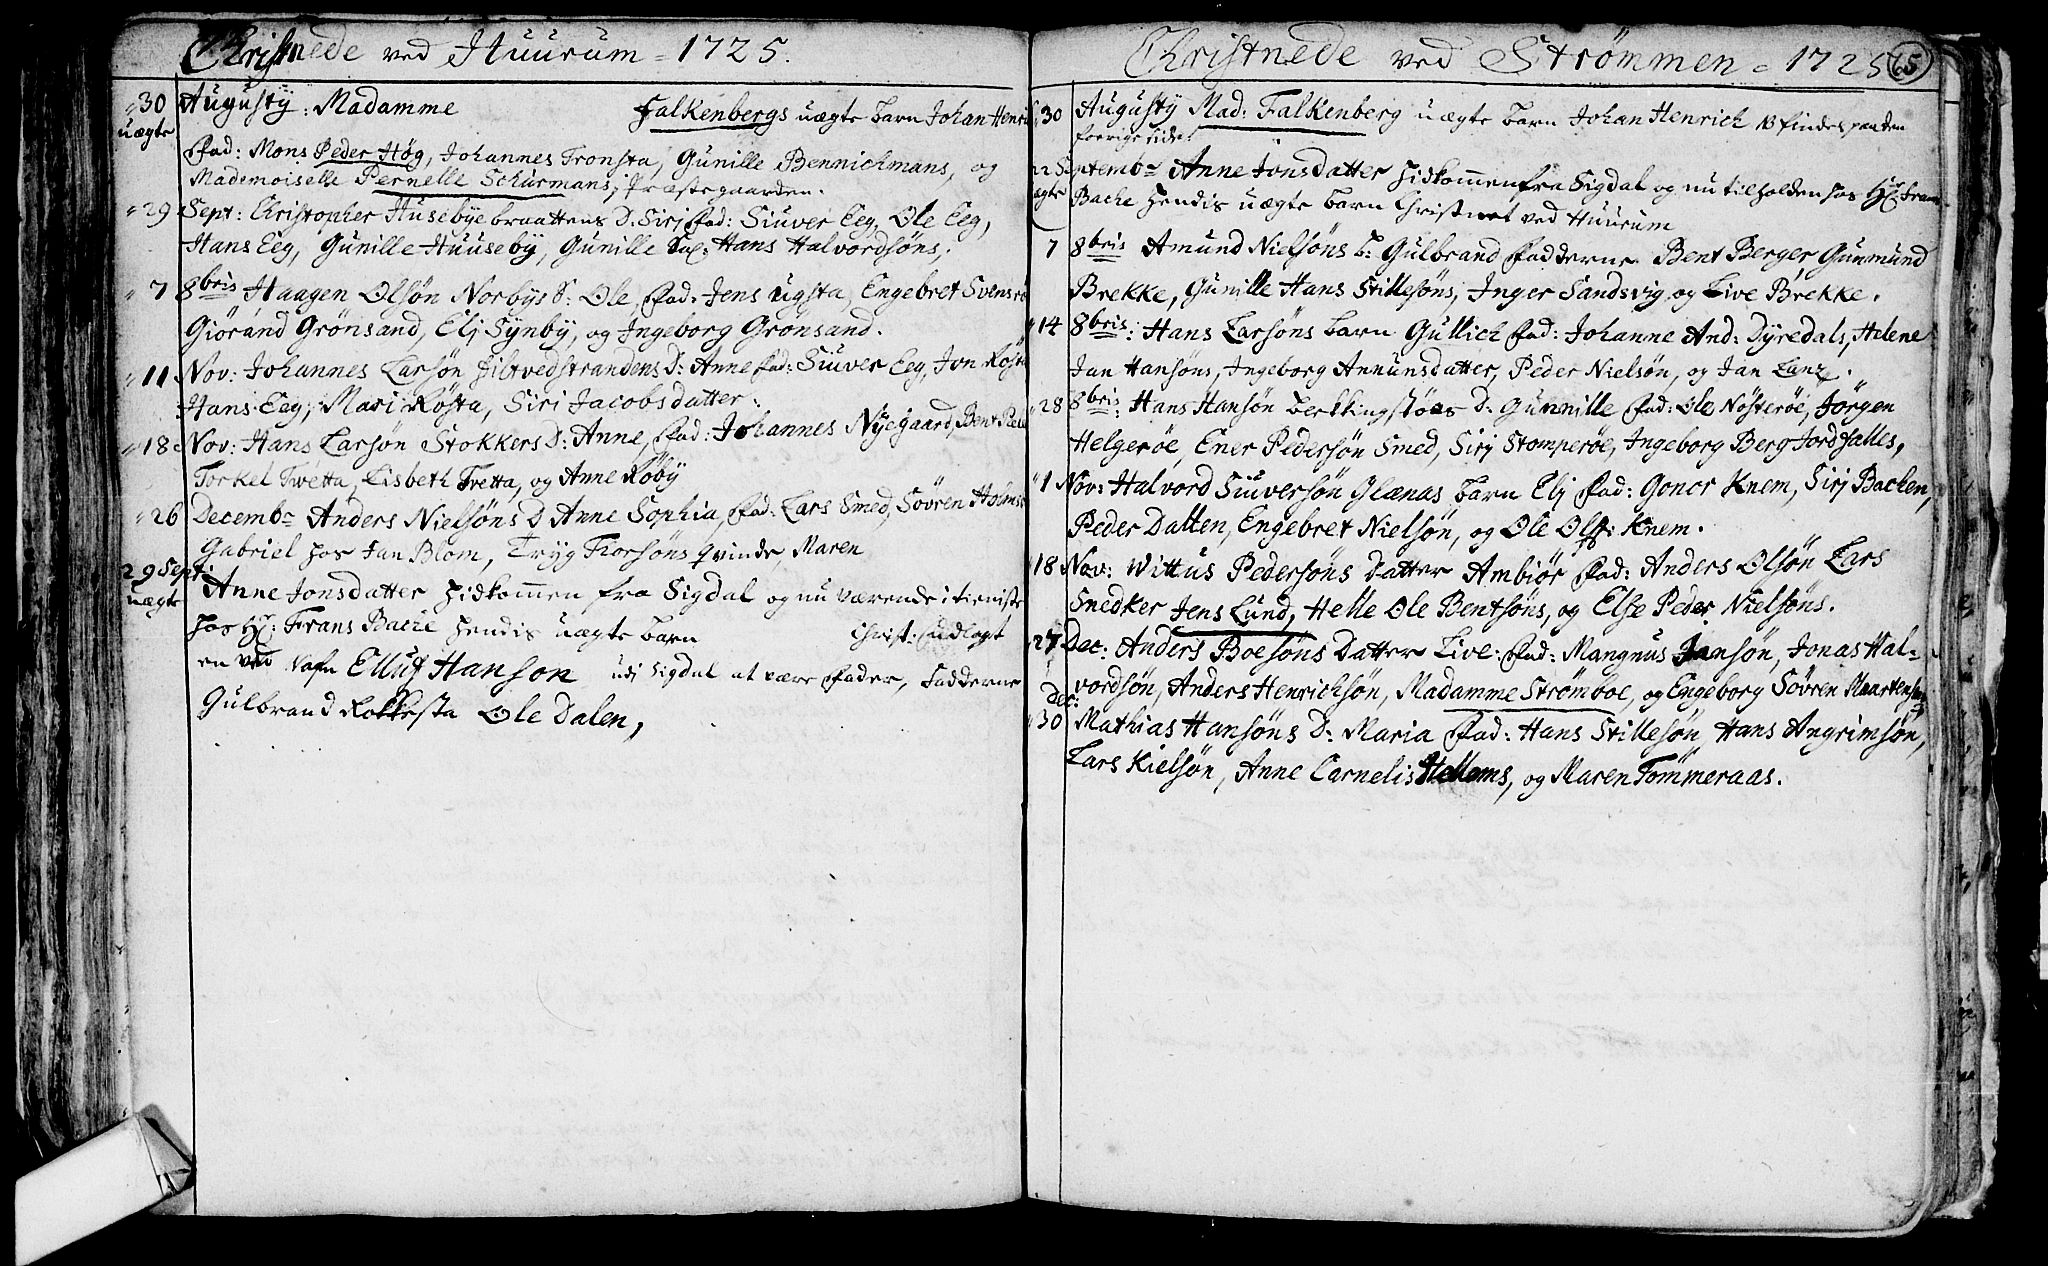 Christnede ved Huurum = 1725.
30 Augusty: Madamme Falkenbergs uægte barn Johan Henrich
uægte
Fad: Mons Peder Høg, Johannes Tronsta, Gunille Bennichmans, og
Mademoiselle Pernelle Schurmans, Præstegaarden.
29 Sept: Christopher Husebye braattens D. Sirj Fad: Siuver Eeg, Ole Eeg,
Hans Eeg, Gunille Huuseby, Gunille Hans Halvordsøns,
7 8bris Haagen Olsøn Norbys S: Ole, Fad: Jens Ugsta, Engebret Svensrø
Giørand Grønsand, Elj Synby, og Ingeborg Grønsand.
11 Nov: Johannes Larsøn filtvedstrandens D: Anne Fad: Siuver Eeg, Jon Røsta
Hans Eeg, Mari Røsta, Siri Jacobsdatter.
18 Nov: Hans Larsøn Stokkers D: Anne, Fad: Johannes Nyegaard, Bent
Torkel Tvetta, Lisbeth Tvetta, og Anne Røby
26 Decembr Anders Nielsøns D Anne Sophia, Fad: Lars Smed, Søvren
Gabriel hos Jan Blom, Tryg Torsøns qvinde, Maren
29 Sept: Anne Jonsdatter hidkommen fra Sigdal og nu værende i tieniste
uægte
hos Hr: Frans Bache hendis uægte barn Christ: udlagt
en ved Nafn Elluf Hanson udj Sigdal at være Fader, Fadderne
Gulbrand Rokkesta Ole Dalen,
Christnede ved Strømmen = 1725
65
30 Augusty Mad: Falkenberg uægte barn Johan Henrich NB findes paa den
forrige side.
22 Septembr Anne Jonsdatter hidkommen fra Sigdal og nu tilholden hos Hr Frans
uægte Bache hendis uægte barn Christnet ved Huurum
7 8bris Amund Nielsøns b: Gulbrand Fadderne Bent Berger Gunmund
Brekke, Gunille Hans Stillesøns, Inger Sandsvig og Live Brekke.
14 8bris: Hans Larsøns barn Gullich Fad: Johanne And: Dyredals, Helene
Jan Hansøns, Ingeborg Annunsdatter, Peder Nielsøn, og Jan Lanz.
28 8bris: Hans Hansøn bekkingstøes D: Gunnille Fad: Ole Nøsterøe, Jørgen
Helgerøe, Ener Pedersøn Smed, Sirj Stomperøe, Ingeborg Berg Jordfalles,
1 Nov: Halvord Siuversøn Glænas barn Elj Fad: Gonor Knem, Sirj Bachen,
Peder Datten, Engebret Nielsøn, og Ole Olss: Knem.
18 Nov: Wittus Pedersøns Datter Ambiør Fad: Anders Olsøn Lars
Snedker Jens Lund, Helle Ole Bentsøns, og Else Peder Nielsøns.
27 Dec: Anders Boesøns Datter Live: Fad: Mangnus Jansøn, Jonas Hal=
vordsøn, Anders Henrichsøn, Madamme Strømboe, og Engeborg Søvren Maartensøns
Dec:
30 Mathias Hansøns D: Maria Fad: Hans Stillesøn Hans Angrimsøn,
Lars Kielsøn, Anne Carnelis Hellems, og Maren Tømmeraas.